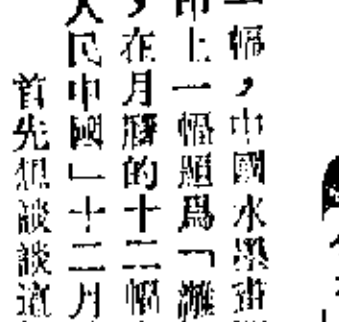 一幅，中國水墨畫
印上一幅題爲「濰
，在月曆的十二幅
人民中國」十二月
首先想談談這